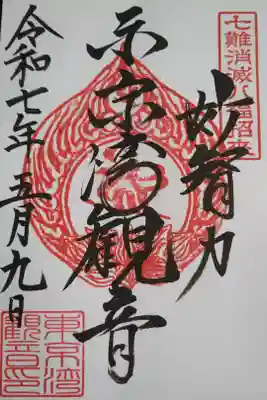 七難消滅
福招来
妙智力
東京湾觀音
令和七年五月九日
東京湾
觀音印